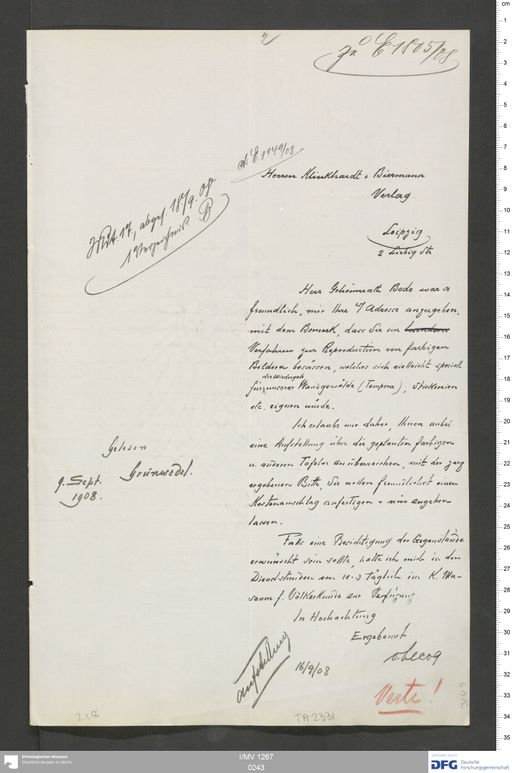 2
zu E 1805/08
ad E 1949/08
Herren Klinkhardt & Biermann
Verlag
Leipzig
2 Liebig Str
abges. 18/9. 08
1 Verzeichniß
Herr Geheimrath Bode war so
freundlich, mir Ihre Adresse anzugeben,
mit dem Bemerk, dass Sie ein
Verfahren zur Reproduction von farbigen
Bildern besässen, welches sich vielleicht speciell
für unserer Wandgemälde (Tempera), Stickereien
etc. eignen würde.
Ich erlaube mir daher, Ihnen anbei
eine Aufstellung über die geplanten farbigen
u. anderen Tafeln zu überreichen, mit der ganz
ergebenen Bitte, Sie wollen freundlichst einen
Kostenanschlag anfertigen & mir zugehen
lassen.
Falls eine Besichtigung der Gegenstände
erwünscht sein sollte, halte ich mich in den
Dienststunden von 10-3 täglich im K. Mu-
seum f. Völkerkunde zur Verfügung.
In Hochachtung
Ergebenst
v. Lecoq
16/9/08
Gelesen
Grünwedel.
9. Sept.
1908.
Aufstellung
Verte!
218
TA 2331
Ethnologisches Museum
Staatliche Museen zu Berlin
I/MV 1267
0243
DFG Deutsche
Forschungsgemeinschaft